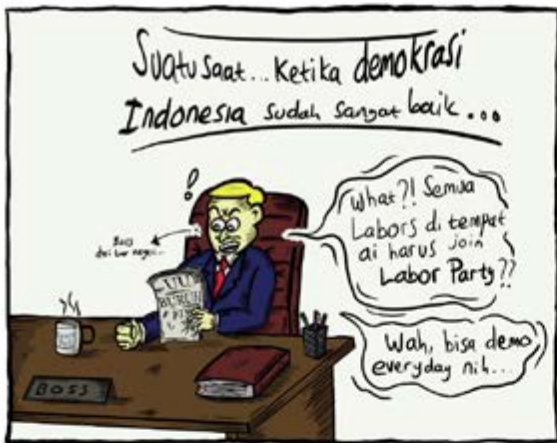 Suatu saat... Ketika demokrasi
Indonesia sudah sangat baik...
!
Boss
dari luar negeri...
What?! Semua
Labors di tempat
ai harus join
Labor Party??
UU
BURUH
Wah, bisa demo
everyday nih...
BOSS